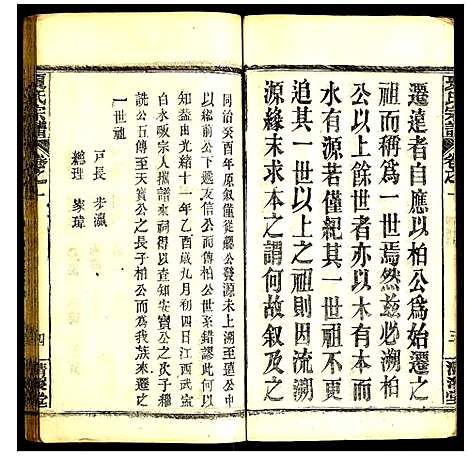 遷遠者自應以柏公爲始遷之
祖而稱爲一世焉然茲必溯柏
公以上餘世者亦以木有本而
水有源若僅紀其一世祖不
追其一世以上之祖則因流溯
源緣未求本之謂何故叙及之
同治癸酉年原叙僅從巖公發源未上溯至遠公中
以繼前公下遞友信公而得柏公世家錯謬此何以
知蓋由光緒十一年乙酉歲九月初四日江西武寧
白水畈宗人攜譜來祠始知惟安寶公之次子穆
誂公五傳至天寶公之長子柏公爲我族來遷之
一世祖
戸長 步瀛
總理 家瑋
夏氏宗譜
卷之一
四
清源堂
卷之一
三